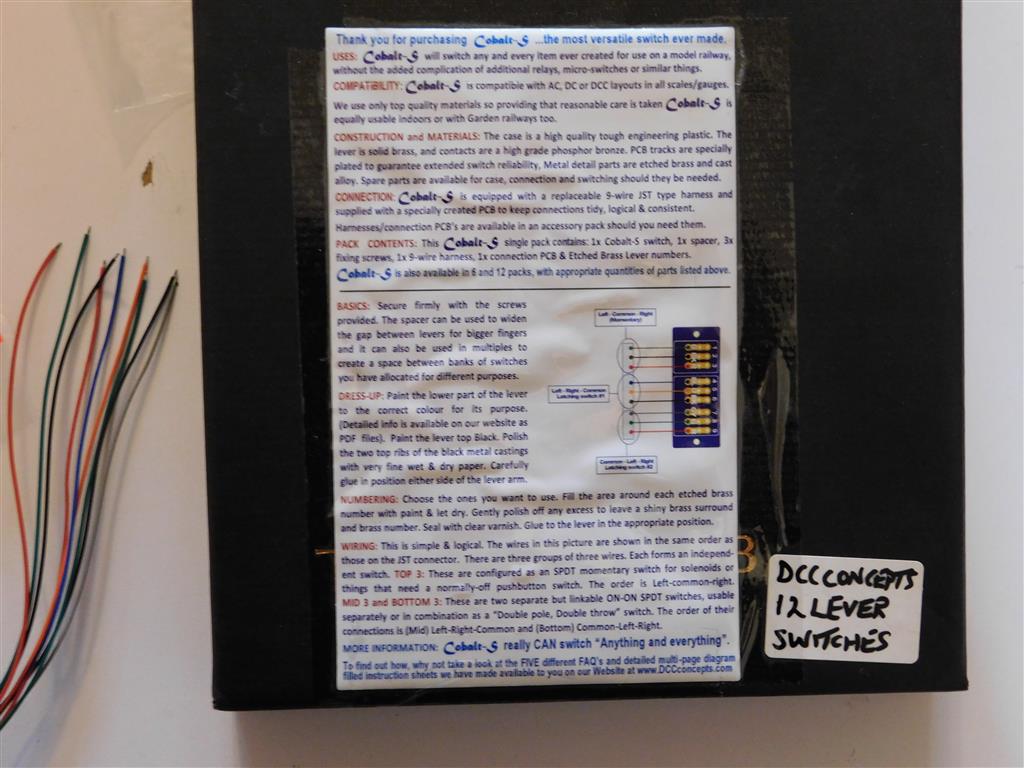 Thank you for purchasing Cobalt-S ...the most versatile switch ever made.
USES: Cobalt-S will switch any and every item ever created for use on a model railway,
without the added complication of additional relays, micro-switches or similar things.
COMPATIBILITY: Cobalt-S is compatible with AC, DC or DCC layouts in all scales/gauges.
We use only top quality materials so providing that reasonable care is taken Cobalt-S is
equally usable indoors or with Garden railways too.
CONSTRUCTION and MATERIALS: The case is a high quality tough engineering plastic. The
lever is solid brass, and contacts are a high grade phosphor bronze. PCB tracks are specially
plated to guarantee extended switch reliability, Metal detail parts are etched brass and cast
alloy. Spare parts are available for case, connection and switching should they be needed.
CONNECTION: Cobalt-S is equipped with a replaceable 9-wire JST type harness and
supplied with a specially created PCB to keep connections tidy, logical & consistent.
Harnesses/connection PCB's are available in an accessory pack should you need them.
PACK CONTENTS: This Cobalt-S single pack contains: 1x Cobalt-S switch, 1x spacer, 3x
fixing screws, 1x 9-wire harness, 1x connection PCB & Etched Brass Lever numbers.
Cobalt-S is also available in 6 and 12 packs, with appropriate quantities of parts listed above.
BASICS: Secure firmly with the screws
provided. The spacer can be used to widen
the gap between levers for bigger fingers
and it can also be used in multiples to
create a space between banks of switches
you have allocated for different purposes.
DRESS-UP: Paint the lower part of the lever
to the correct colour for its purpose.
(Detailed info is available on our website as
PDF files). Paint the lever top Black. Polish
the two top ribs of the black metal castings
with very fine wet & dry paper. Carefully
glue in position either side of the lever arm.
Left - Common - Right
(Momentary)
Left - Right - Common
Latching switch #1
Common - Left - Right
Latching switch #2
1
2
3
4
5
6
7
8
9
NUMBERING: Choose the ones you want to use. Fill the area around each etched brass
number with paint & let dry. Gently polish off any excess to leave a shiny brass surround
and brass number. Seal with clear varnish. Glue to the lever in the appropriate position.
WIRING: This is simple & logical. The wires in this picture are shown in the same order as
those on the JST connector. There are three groups of three wires. Each forms an independ-
ent switch. TOP 3: These are configured as an SPDT momentary switch for solenoids or
things that need a normally-off pushbutton switch. The order is Left-common-right.
MID 3 and BOTTOM 3: These are two separate but linkable ON-ON SPDT switches, usable
separately or in combination as a "Double pole, Double throw" switch. The order of their
connections is (Mid) Left-Right-Common and (Bottom) Common-Left-Right.
MORE INFORMATION: Cobalt-S really CAN switch "Anything and everything".
To find out how, why not take a look at the FIVE different FAQ's and detailed multi-page diagram
filled instruction sheets we have made available to you on our Website at www.DCCconcepts.com
DCC CONCEPTS
12 LEVER
SWITCHES